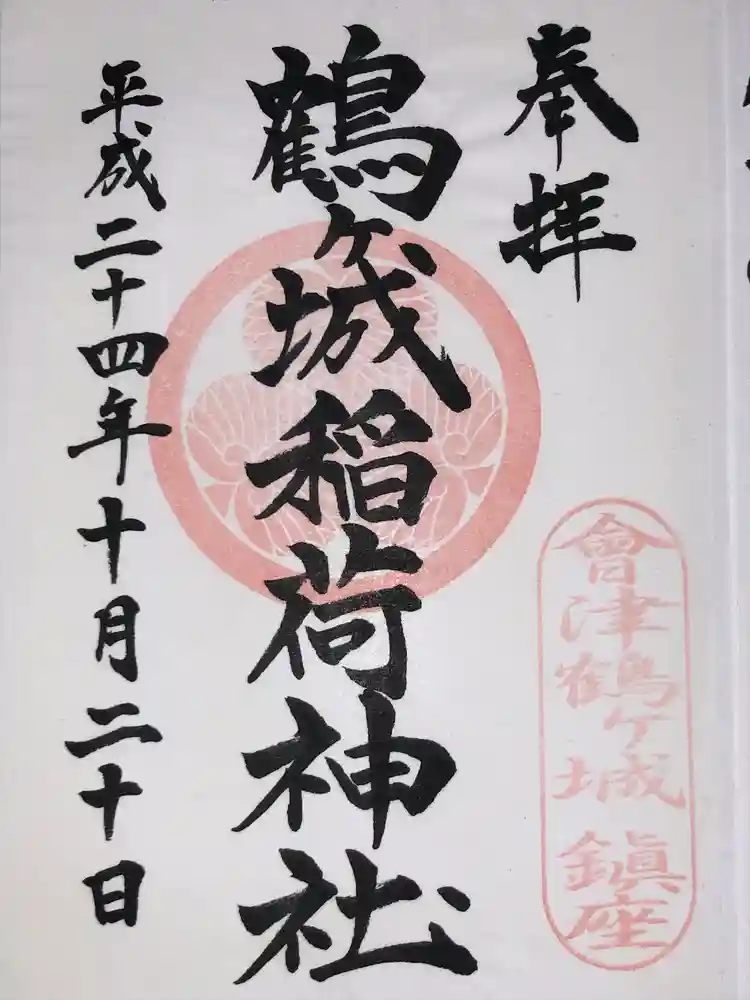 奉拝
會津鶴ケ城鎮座
鶴ケ城稲荷神社
平成二十四年十月二十日